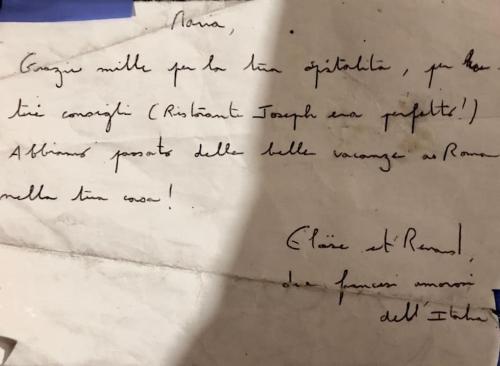 Maria,
Grazie mille per la tua ospitalità, per
tuoi consigli (Ristorante Joseph era perfetto!)
Abbiamo passato delle belle vacanze a Roma
nella tua casa!
et Renaud,
due francesi amorosi
dell'Italia